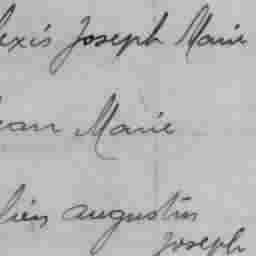 lexis Joseph Marie
ean Marie
lien augustin
Joseph